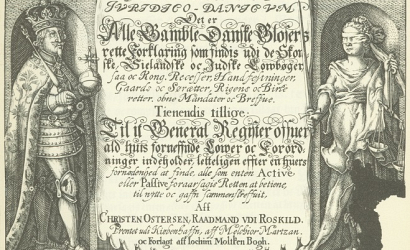 JVRIDICO-DANICVM
Det er
Alle Gamble Danske Glosers
rette Forklaring som findis udi de Skon-
ske, Sielandske oc Judske Lowbøger
saa oc Kong. Recesser, Handfestninger,
Gaards oc Søretter, Rigens oc Birke
retter, obne Mandater oc Brefve.
Tienendis tillige
Til it General Register offver
ald huis forneffnde Lower oc Forord-
ninger indeholder, letteligen effter en huers
fornødenhed at finde, alle som enten Active
eller Passive foraarsagis Retten at betiene,
til nytte oc gaffn sammenskreffvit.
Aff
CHRISTEN OSTERSEN, RAADMAND VDI ROSKILD.
Prentet udi Kiøbenhaffn, aff Melchior Martzan.
oc Forlagt aff Iochim Moltken Bogh.